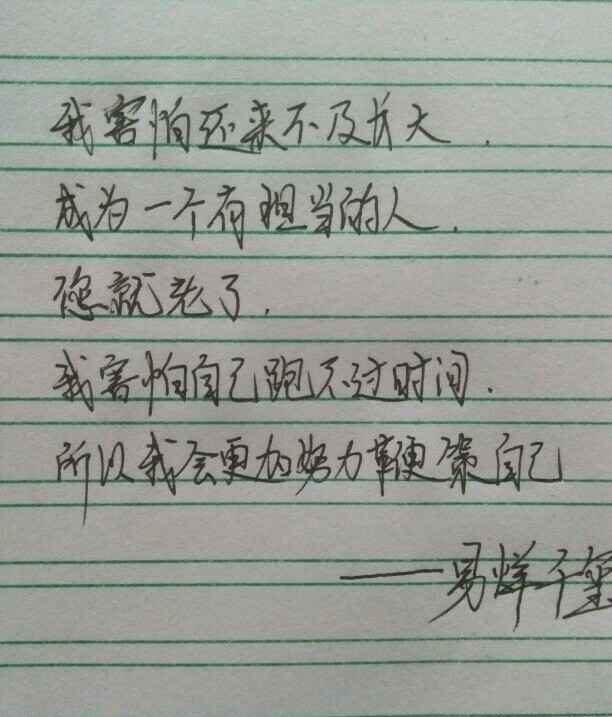 我害怕还来不及长大.
成为一个有担当的人.
您就老了.
我害怕自己跑不过时间.
所以我会更加努力鞭策自己
——易烊千玺